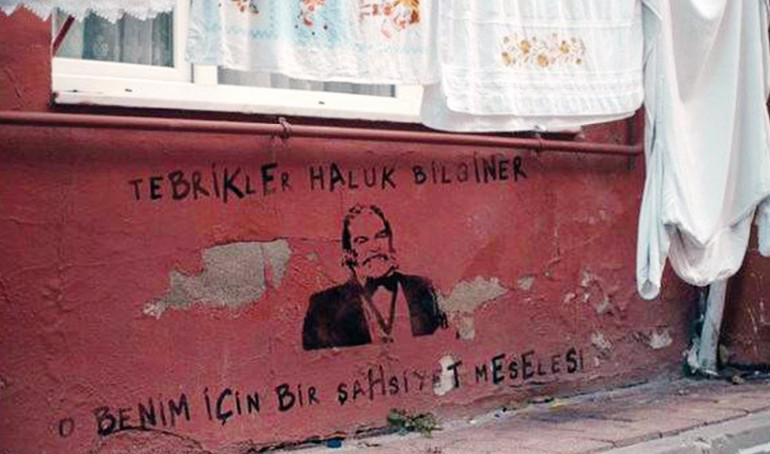 TEBRİKLER HALUK BİLGİNER
O BENİM İÇİN BİR ŞAHSİYET MESELESİ